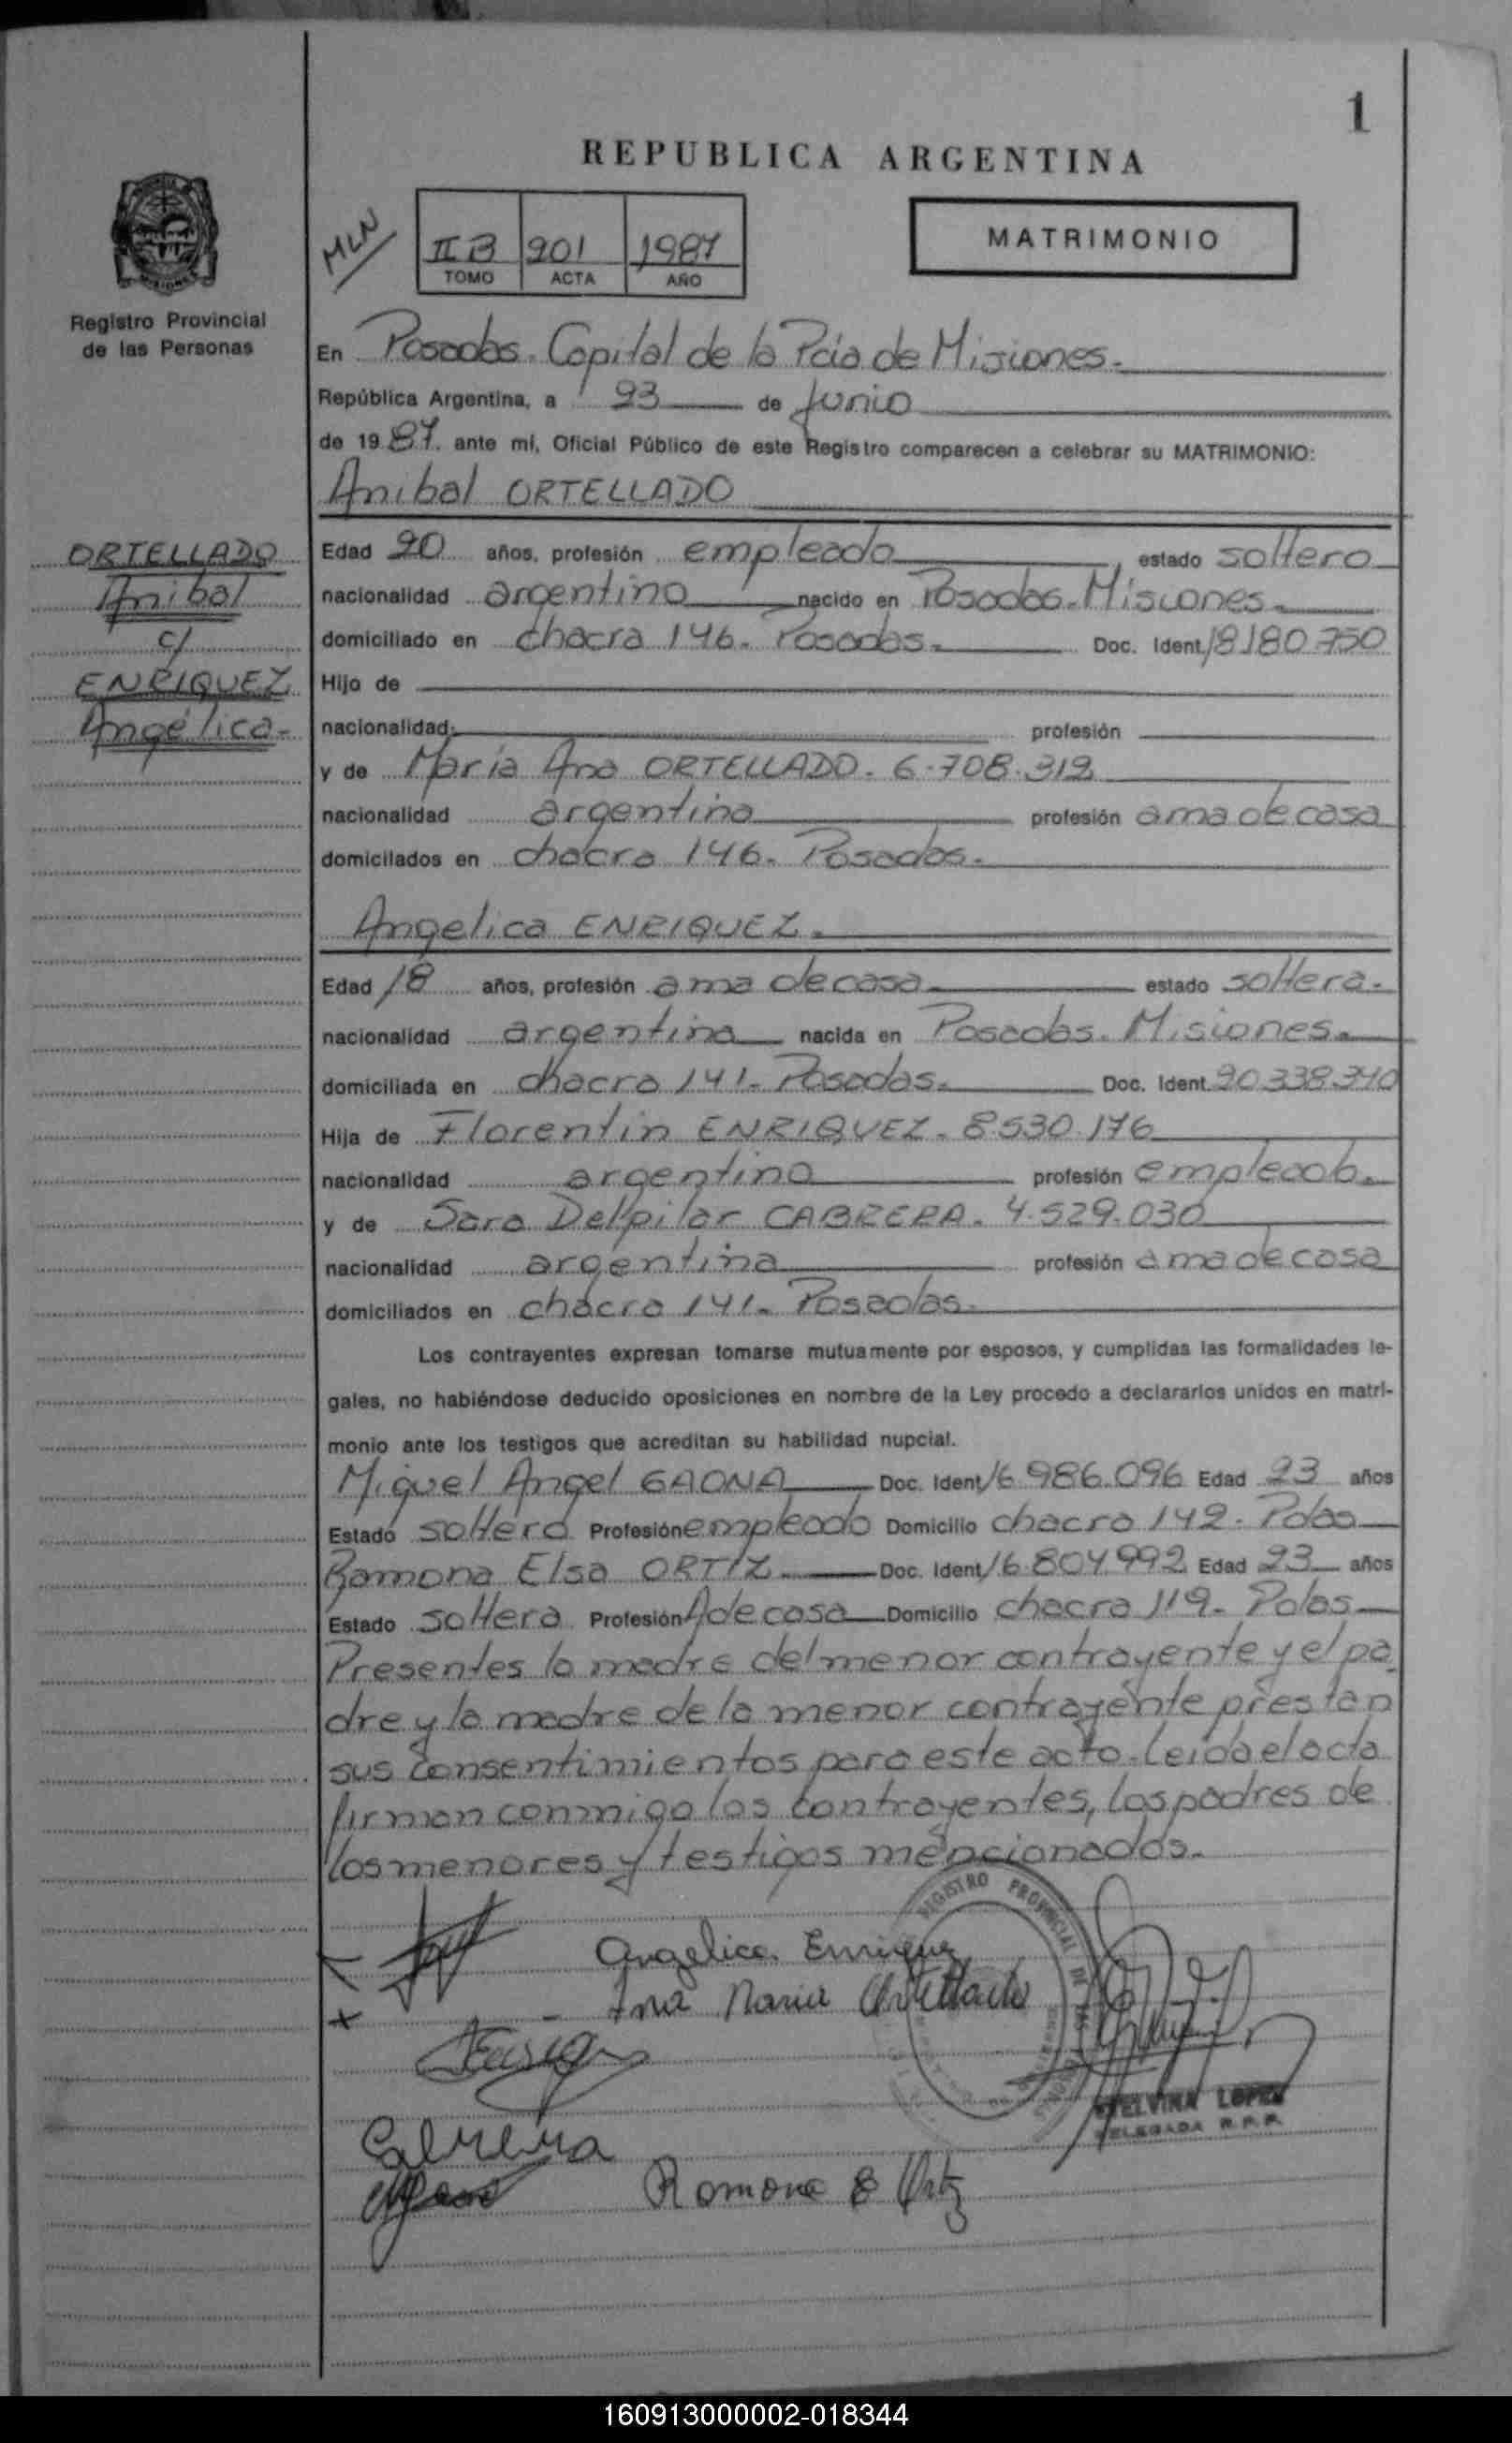 1
REPUBLICA ARGENTINA
MLN
II B 201 1987
TOMO ACTA AÑO
MATRIMONIO
Registro Provincial
de las Personas
En Posadas. Capital de la Pcia de Misiones.
República Argentina, a 23 de Junio
de 1987. ante mí, Oficial Público de este Registro comparecen a celebrar su MATRIMONIO:
Anibal ORTELLADO
ORTELLADO
Anibal
c/
ENRIQUEZ
Angélica-
Edad 20 años, profesión empleado estado soltero
nacionalidad argentino nacido en Posadas-Misiones-
domiciliado en chacra 146. Posadas. Doc. Ident. 18180.750
Hijo de
nacionalidad profesión
y de María Ana ORTELLADO. 6.708.312
nacionalidad argentina profesión ama de casa
domicilados en chacra 146. Posadas.
Angelica ENRIQUEZ.
Edad 18 años, profesión ama de casa estado soltera.
nacionalidad argentina nacida en Posadas. Misiones.
domiciliada en chacra 141. Posadas. Doc. Ident. 20.338.340
Hija de Florentin ENRIQUEZ. 8.530.176
nacionalidad argentino profesión empleado.
y de Sara Delpilar CABRERA. 4.529.030
nacionalidad argentina profesión ama de casa
domiciliados en chacra 141. Posadas.
Los contrayentes expresan tomarse mutuamente por esposos, y cumplidas las formalidades le-
gales, no habiéndose deducido oposiciones en nombre de la Ley procedo a declararlos unidos en matri-
monio ante los testigos que acreditan su habilidad nupcial.
Miguel Angel GAONA Doc. Ident. 16.986.096 Edad 23 años
Estado soltero Profesión empleado Domicilio chacra 142. Pdas
Ramona Elsa ORTIZ. Doc. Ident. 16.804.992 Edad 23 años
Estado soltera Profesión Adecasa Domicilio chacra 119. Pdas
Presentes la madre del menor contrayente y el pa
dre y la madre de la menor contrayente prestan
sus consentimientos para este acto. Leida el acta
firman conmigo los contrayentes, los padres de
los menores y testigos mencionados.
REGISTRO PROVINCIAL DE LAS
Angelica Enriquez
Ana Maria Ortellado
ETELVINA LOPEZ
DELEGADA R.P.P.
Cabrera
Ramona E Ortiz
160913000002-018344